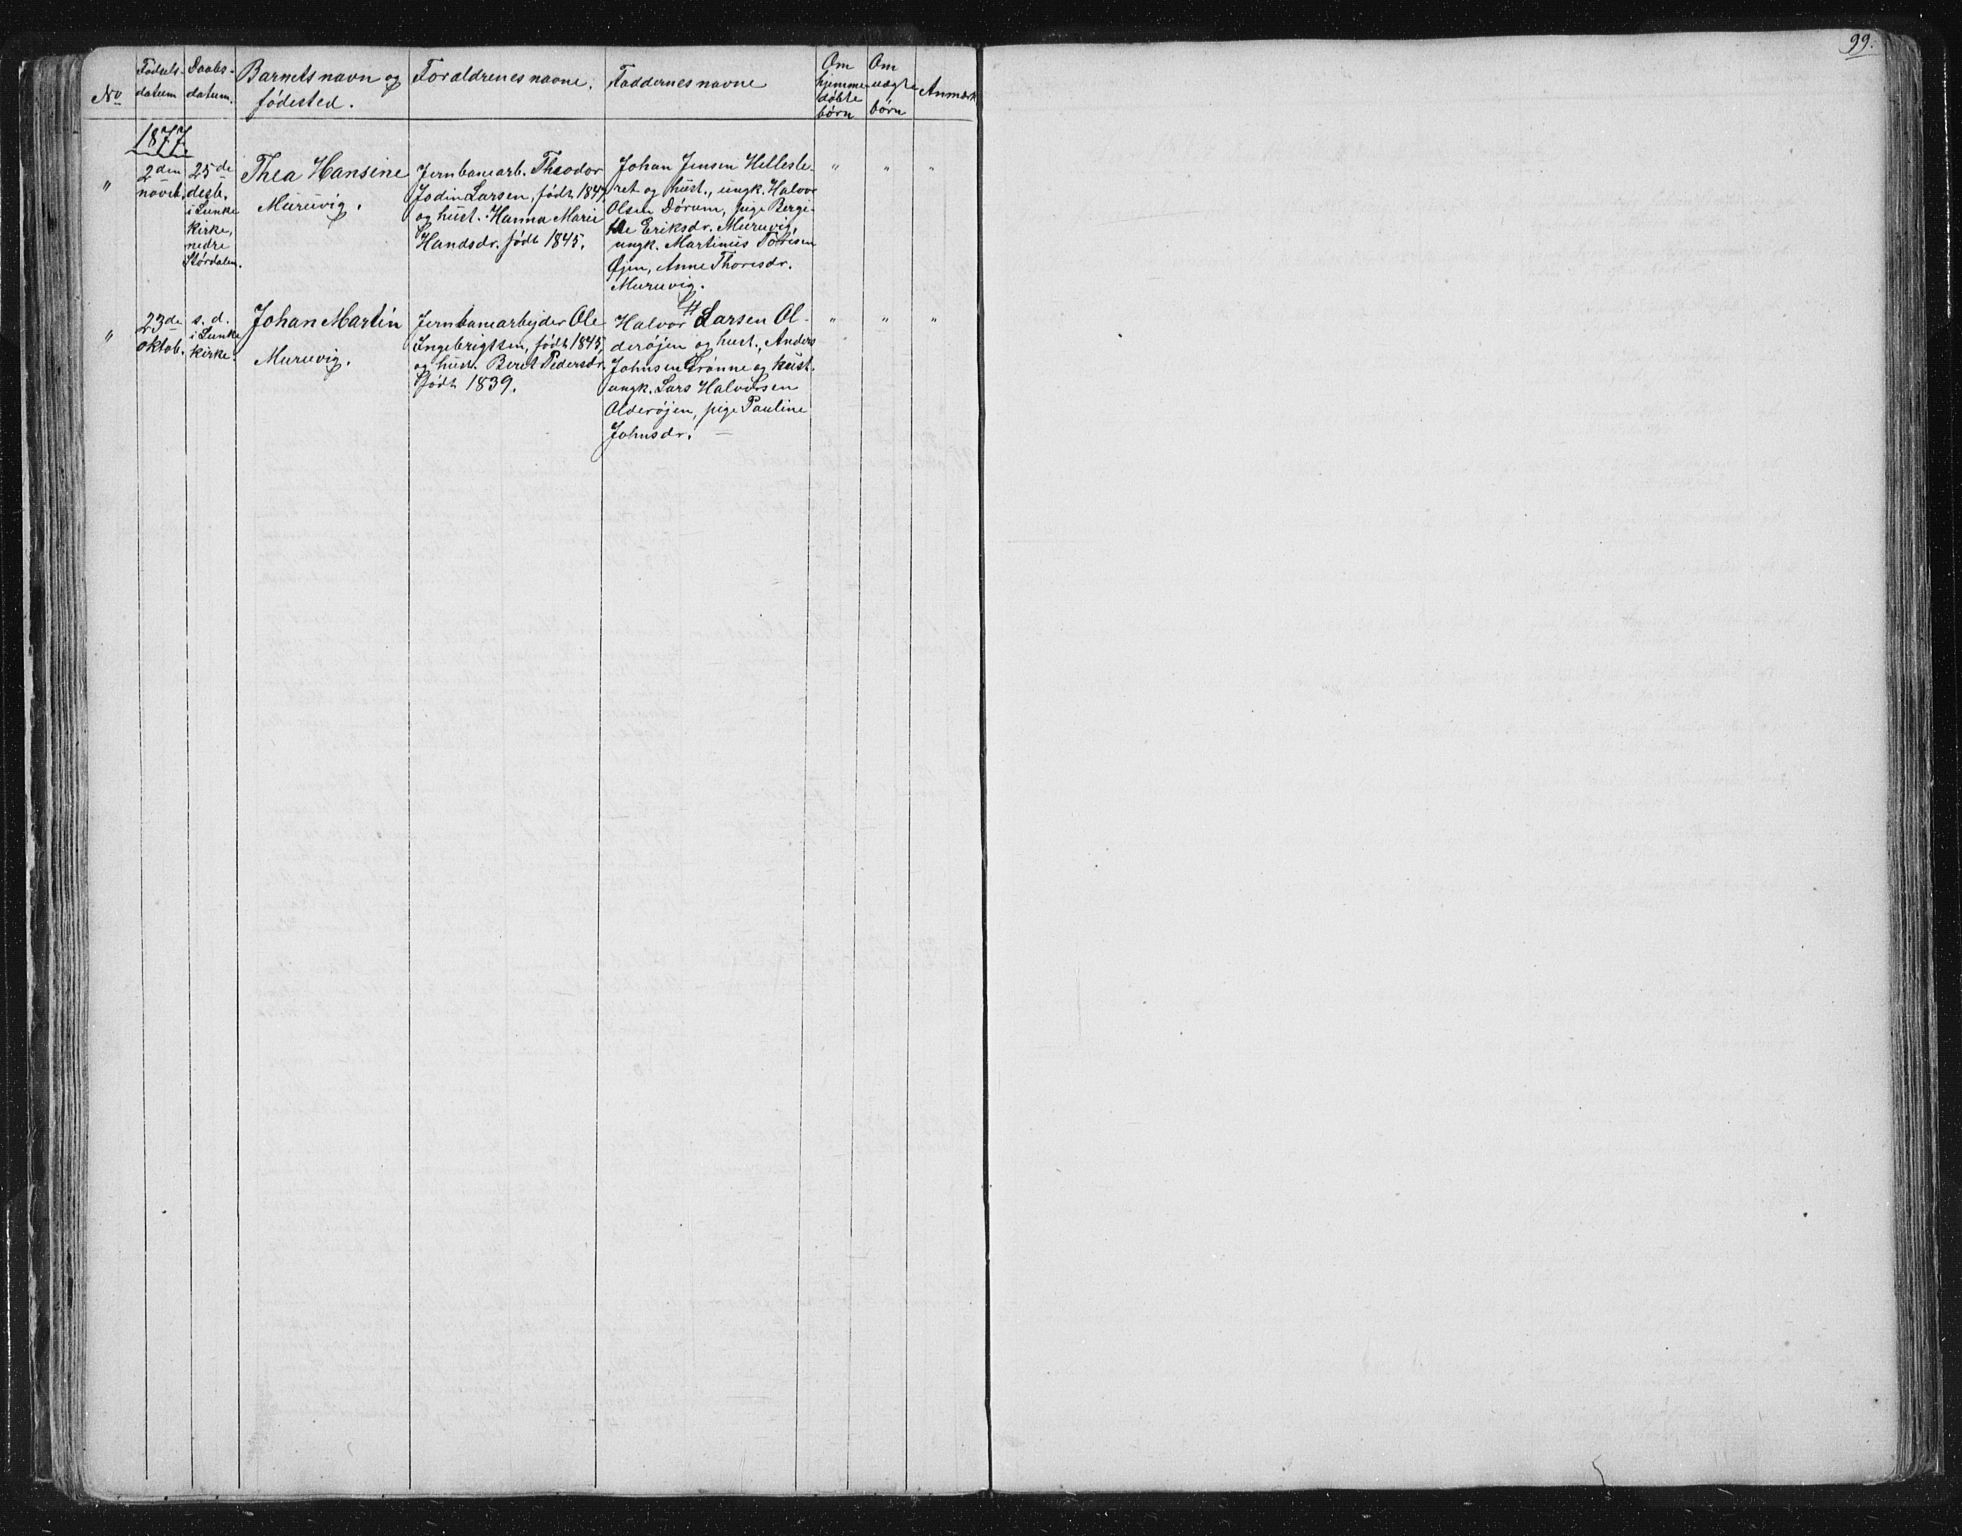 99.
No
Fødsels-
datum
Daabs-
datum.
Barnets navn og
fødested.
Forældrenes navne.
Faddernes navne
Om
hjemme
døbte
børn
Om
uægte
børn
Anmærk
1877.
"
2den
novbr.
25de
decbr.
i Lunke
kirke,
nedre
Størdalen.
Thea Hansine
Muruvig.
Jernbanearb. Theodor
Jodin Larsen, født 1847
og hust. Hanna Marie
Handsdr. født 1845.
Johan Jensen Hellesle-
ret og hust., ungk. Halvor
Olsen Dørum, pige Bergi-
tte Eriksdr. Muruvig,
ungk. Martinus Toresen
Øjen, Anne Thoresdr.
Muruvig.
" " "
"
23de
oktob.
s. d.
i Lunke
kirke.
Johan Martin
Muruvig.
Jernbanearbejder Ole
Ingebrigtsen, født 1845,
og hust. Beret Pedersdr.
født 1839.
Halvor Larsen Al-
derøjen og hust., Anders
Johnsen Trønne og hust.
ungk. Lars Halvorsen
Alderøjen, pige Pauline
Johnsdr. —
" " "